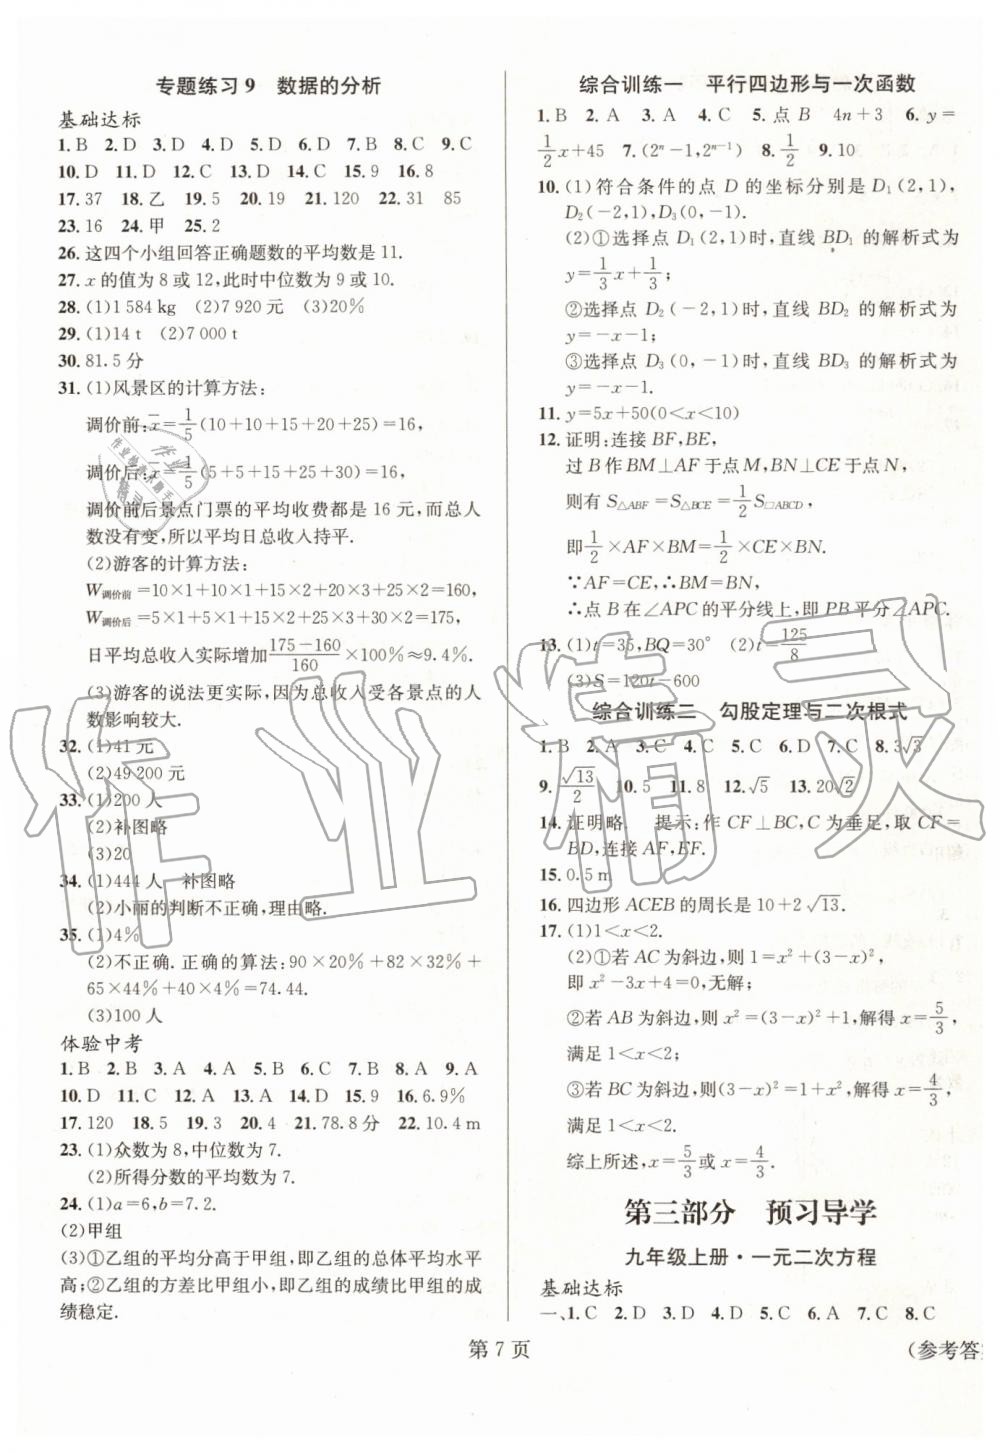 专题练习9 数据的分析
基础达标
1.B 2.D 3.A 4.D 5.D 6.D 7.B 8.C 9.C
10.D 11.D 12.C 13.D 14.C 15.9 16.8
17.37 18.乙 19.5 20.19 21.120 22.31 85
23.16 24.甲 25.2
26.这四个小组回答正确题数的平均数是11.
27.x的值为8或12,此时中位数为9或10.
28.(1)1 584 kg (2)7 920元 (3)20%
29.(1)14 t (2)7 000 t
30.81.5分
31.(1)风景区的计算方法:
调价前:x̄=1/5(10+10+15+20+25)=16,
调价后:x̄=1/5(5+5+15+25+30)=16,
调价前后景点门票的平均收费都是16元,而总人
数没有变,所以平均日总收入持平.
(2)游客的计算方法:
W调价前=10×1+10×1+15×2+20×3+25×2=160,
W调价后=5×1+5×1+15×2+25×3+30×2=175,
日平均总收入实际增加(175-160)/160×100%≈9.4%.
(3)游客的说法更实际,因为总收入受各景点的人
数影响较大.
32.(1)41元
(2)49 200元
33.(1)200人
(2)补图略
(3)20
34.(1)444人 补图略
(2)小丽的判断不正确,理由略.
35.(1)4%
(2)不正确.正确的算法:90×20%+82×32%+
65×44%+40×4%=74.44.
(3)100人
体验中考
1.B 2.B 3.A 4.A 5.C 6.C 7.A 8.A 9.A
10.D 11.C 12.A 13.A 14.D 15.9 16.6.9%
17.120 18.5 19.3 20.4 21.78.8分 22.10.4 m
23.(1)众数为8,中位数为7.
(2)所得分数的平均数为7.
24.(1)a=6,b=7.2.
(2)甲组
(3)①乙组的平均分高于甲组,即乙组的总体平均水平
高;②乙组的方差比甲组小,即乙组的成绩比甲组的成
绩稳定.
综合训练一 平行四边形与一次函数
1.B 2.A 3.A 4.C 5.点B 4n+3 6.y=
1/2x+45 7.(2ⁿ-1,2ⁿ⁻¹) 8.1/2 9.10
10.(1)符合条件的点D的坐标分别是D₁(2,1),
D₂(-2,1),D₃(0,-1).
(2)①选择点D₁(2,1)时,直线BD₁的解析式为
y=1/3x+1/3;
②选择点D₂(-2,1)时,直线BD₂的解析式为
y=-x-1;
③选择点D₃(0,-1)时,直线BD₃的解析式为
y=-x-1.
11.y=5x+50(0<x<10)
12.证明:连接BF,BE,
过B作BM⊥AF于点M,BN⊥CE于点N,
则有S△ABF=S△BCE=1/2S□ABCD,
即1/2×AF×BM=1/2×CE×BN.
∵AF=CE,∴BM=BN,
∴点B在∠APC的平分线上,即PB平分∠APC.
13.(1)t=35,BQ=30° (2)t=125/8
(3)S=120t-600
综合训练二 勾股定理与二次根式
1.B 2.A 3.C 4.C 5.C 6.D 7.C 8.3√3
9.√13/2 10.5 11.8 12.√5 13.20√2
14.证明略. 提示:作CF⊥BC,C为垂足,取CF=
BD,连接AF,EF.
15.0.5 m
16.四边形ACEB的周长是10+2√13.
17.(1)1<x<2.
(2)①若AC为斜边,则1=x²+(3-x)²,
即x²-3x+4=0,无解;
②若AB为斜边,则x²=(3-x)²+1,解得x=5/3,
满足1<x<2;
③若BC为斜边,则(3-x)²=1+x²,解得x=4/3,
满足1<x<2.
综上所述,x=5/3或x=4/3.
第三部分 预习导学
九年级上册·一元二次方程
基础达标
一、1.C 2.D 3.D 4.B 5.A 6.A 7.C 8.C
第7页
(参考答
作业精灵